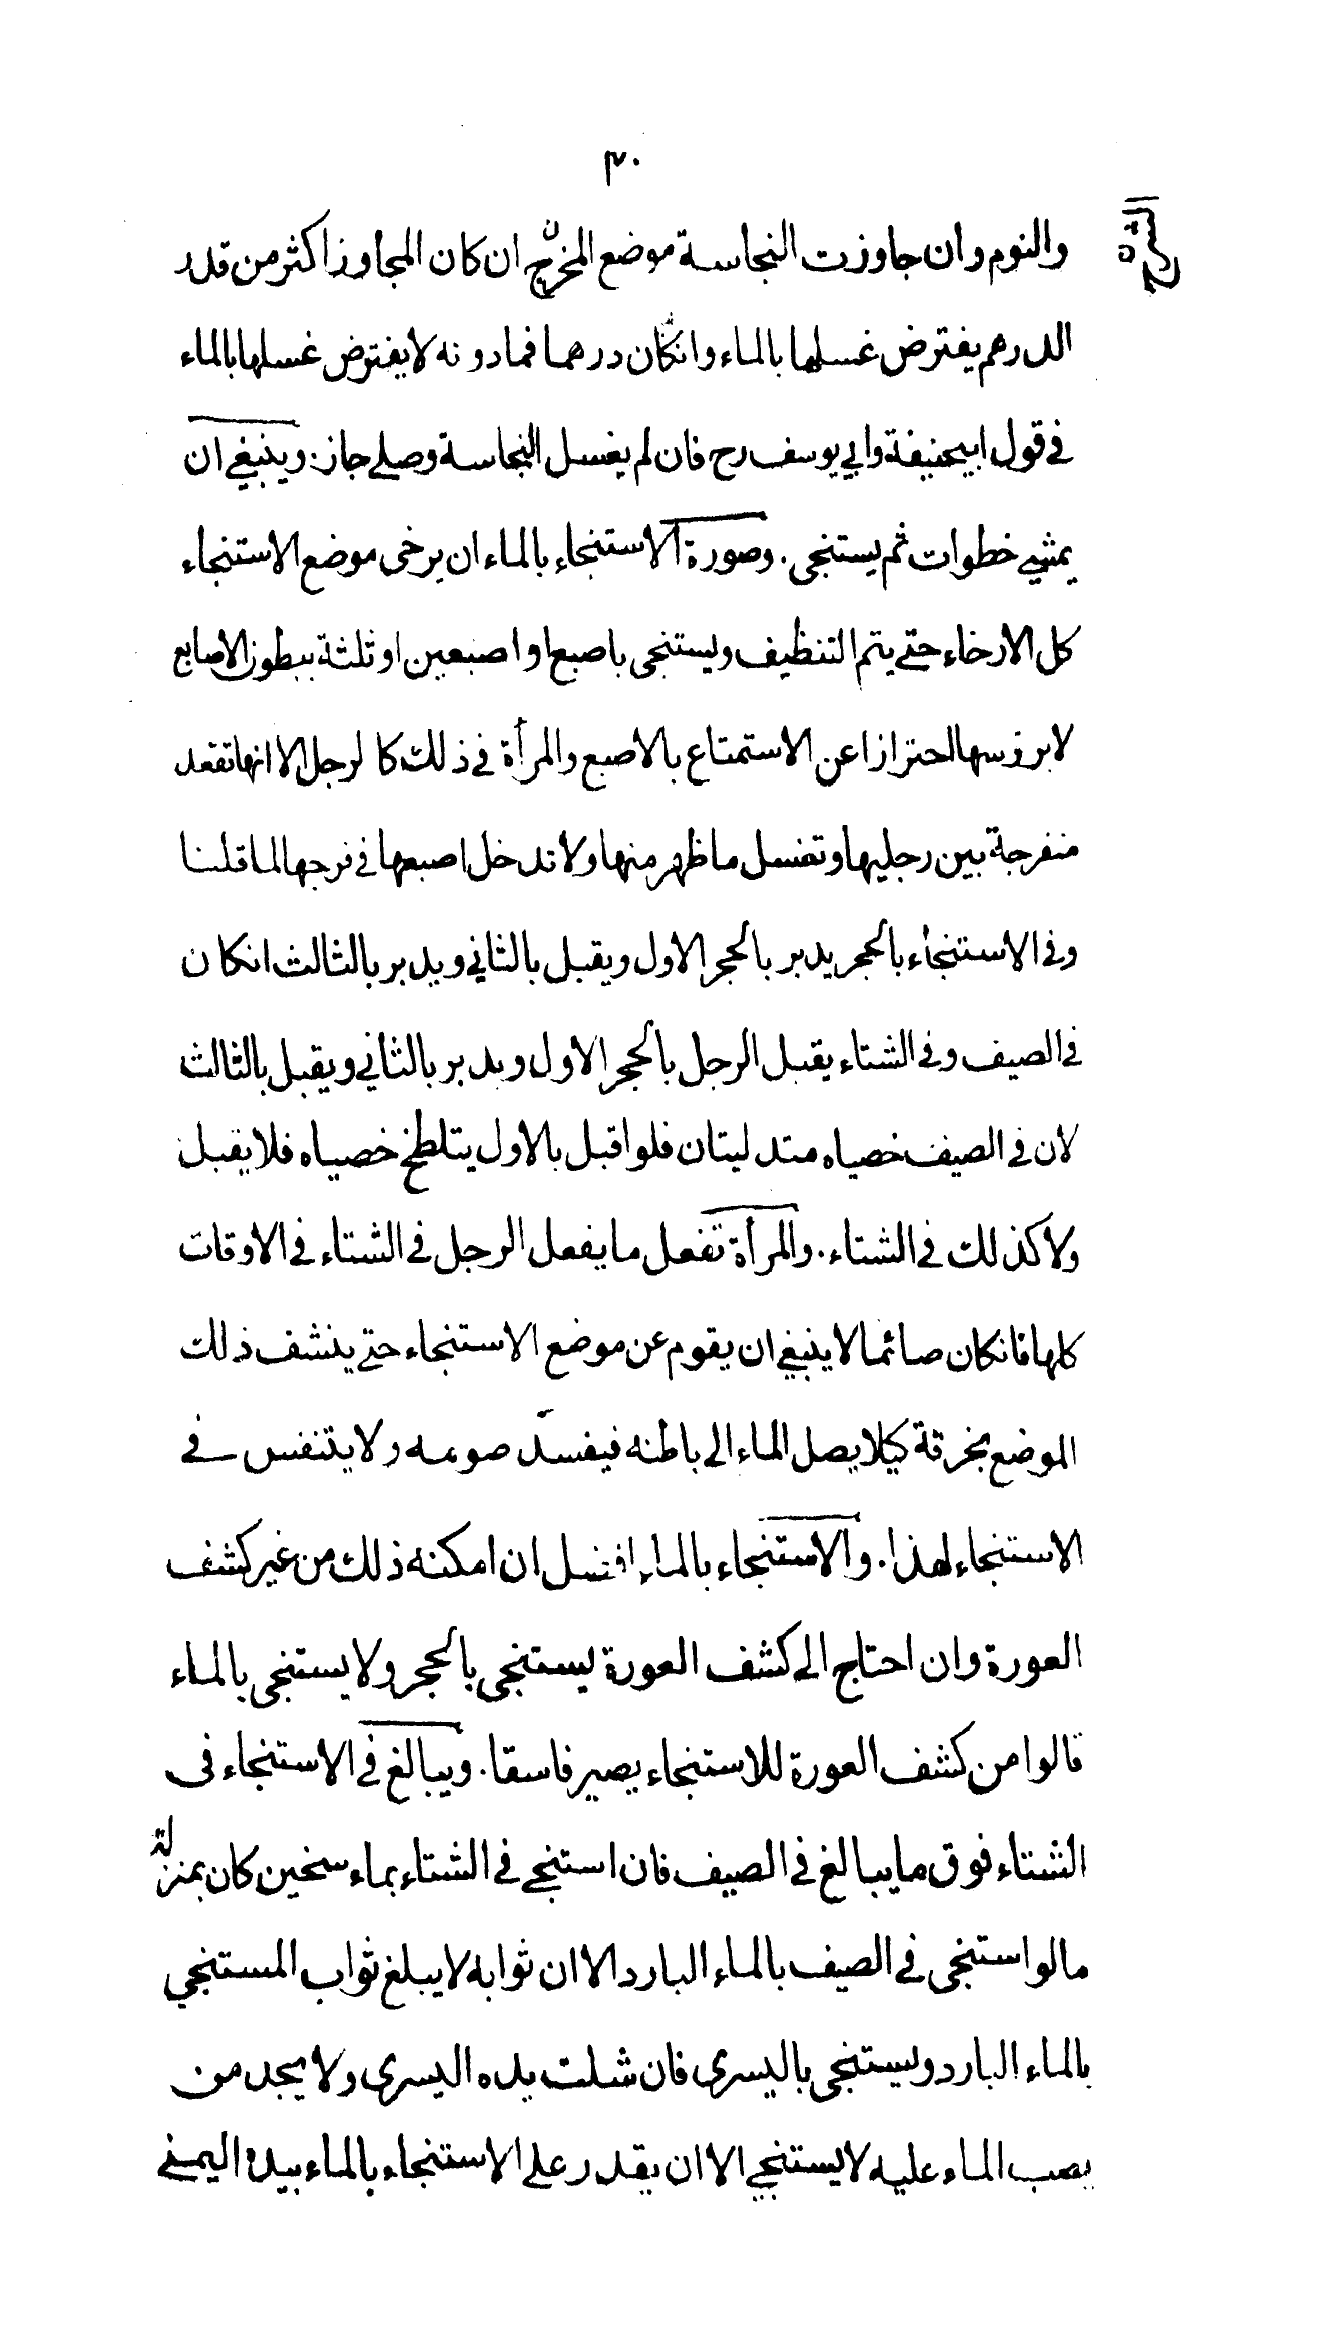 ٣٠
والنوم وان جاوزت النجاسة موضع المخرج ان كان المجاوز اكثر من قدر
الدرهم يفترض غسلها بالماء وانكان درهما فمادونه لا يفترض غسلها بالماء
في قول ابيحنيفة وابي يوسف رح فان لم يغسل النجاسة وصلى جاز. وينبغي ان
يمشي خطوات ثم يستنجى. وصورة الاستنجاء بالماء ان يرخى موضع الاستنجاء
كل الارخاء حتى يتم التنظيف ويستنجى باصبع او اصبعين او ثلثة ببطون الاصابع
لا برؤسها احترازا عن الاستمتاع بالاصبع والمرأة في ذلك كالرجل الا انها تقعد
منفرجة بين رجليها وتغسل ما ظهر منها ولا تدخل اصبعها في فرجها لما قلنا
وفي الاستنجاء بالحجر يدبر بالحجر الاول ويقبل بالثاني ويدبر بالثالث انكان
في الصيف وفي الشتاء يقبل الرجل بالحجر الاول ويدبر بالثاني ويقبل بالثالث
لان في الصيف خصياه متدليتان فلو اقبل بالاول يتلطخ خصياه فلا يقبل
ولا كذلك في الشتاء. والمرأة تفعل ما يفعل الرجل في الشتاء في الاوقات
كلها فانكان صائما لا ينبغي ان يقوم عن موضع الاستنجاء حتى ينشف ذلك
الموضع بخرقة كيلا يصل الماء الى باطنه فيفسد صومه ولا يتنفس في
الاستنجاء لهذا. والاستنجاء بالماء افضل ان امكنه ذلك من غير كشف
العورة وان احتاج الى كشف العورة يستنجى بالحجر ولا يستنجى بالماء
قالوا من كشف العورة للاستنجاء يصير فاسقا. ويبالغ في الاستنجاء في
الشتاء فوق ما يبالغ في الصيف فان استنجى في الشتاء بماء سخين كان بمنزلة
ما لو استنجى في الصيف بالماء البارد الا ان ثوابه لا يبلغ ثواب المستنجي
بالماء البارد ويستنجى باليسرى فان شلت يده اليسرى ولا يجد من
يصب الماء عليه لا يستنجي الا ان يقدر على الاستنجاء بالماء بيده اليمنى